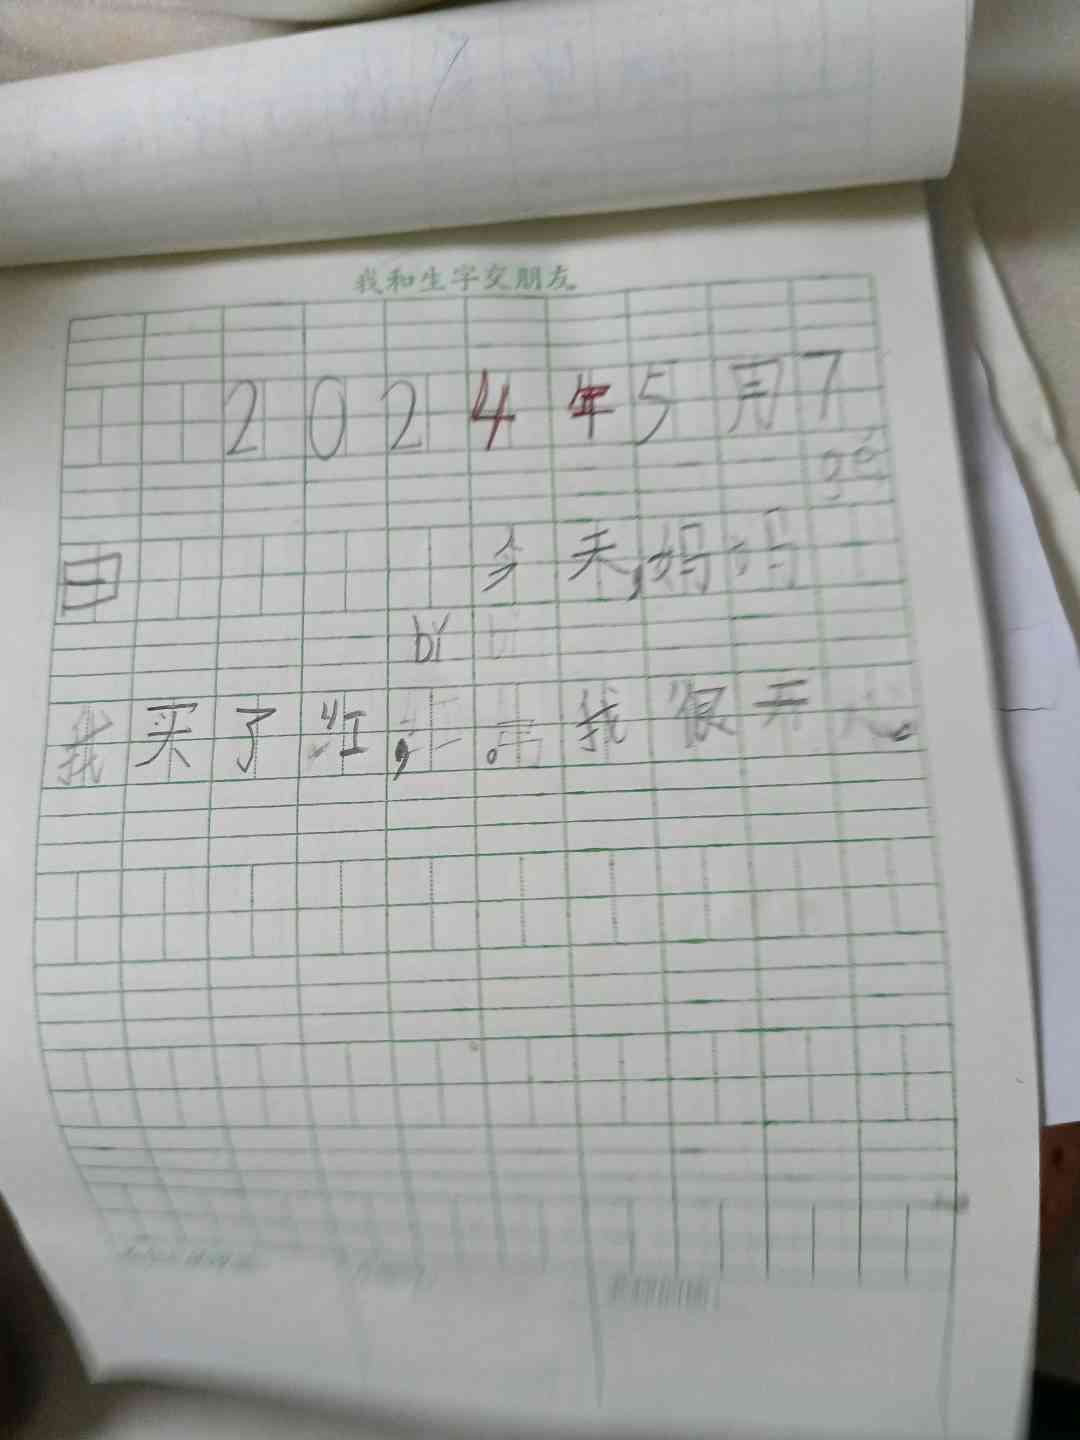 我和生字交朋友
2024年5月7
gě
日 今天,妈妈
bǐ
我买了红,。我很开心。